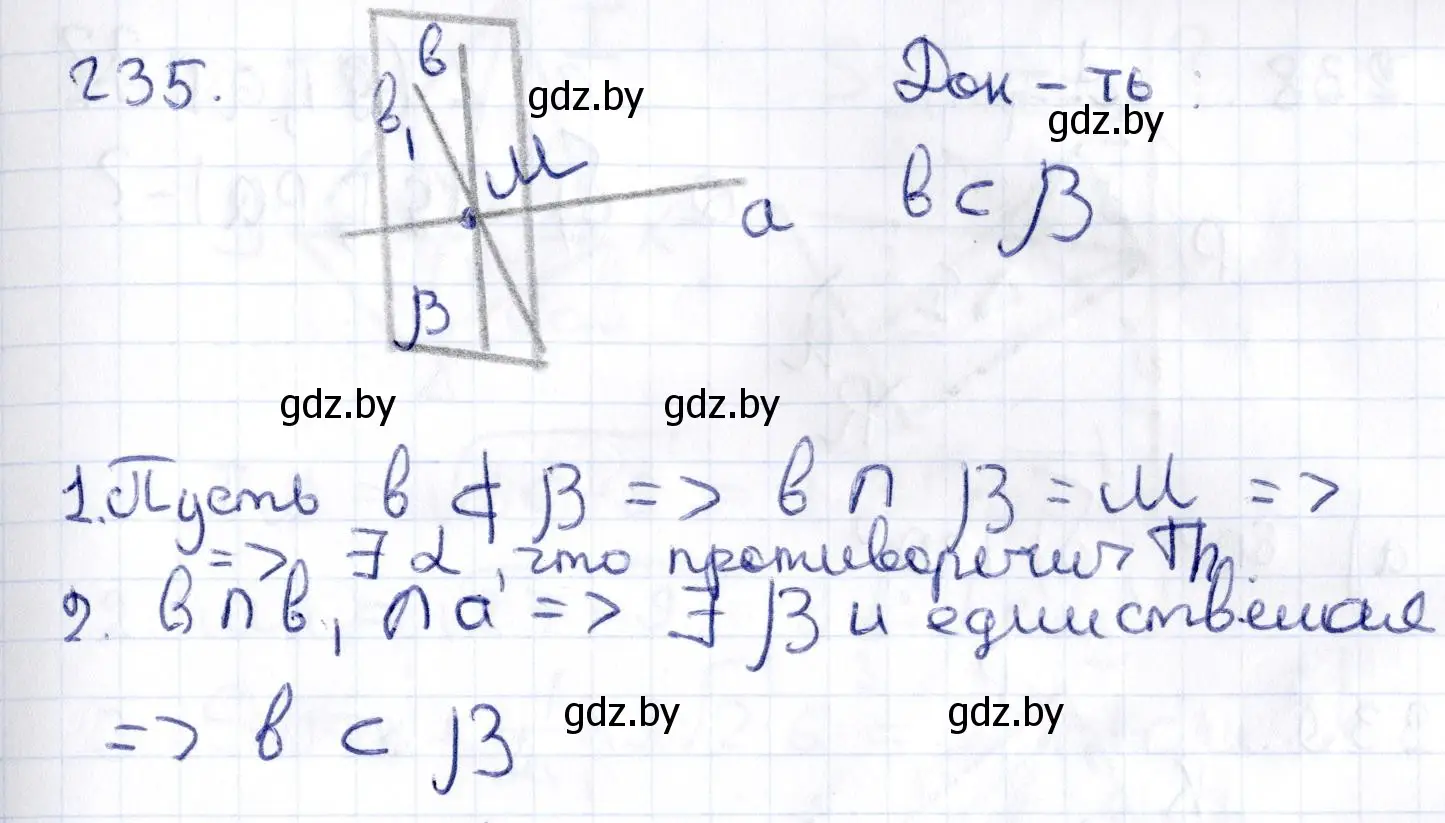 235.
в
в₁
М
а
β
Док-ть:
в ⊂ β
gdz.by
gdz.by
gdz.by
gdz.by
1. Пусть в ⊄ β => в ∩ β = М =>
=> ∃ α, что противоречит Th.
2. в ∩ в₁ ∩ а => ∃ β и единственная
gdz.by
gdz.by
=> в ⊂ β